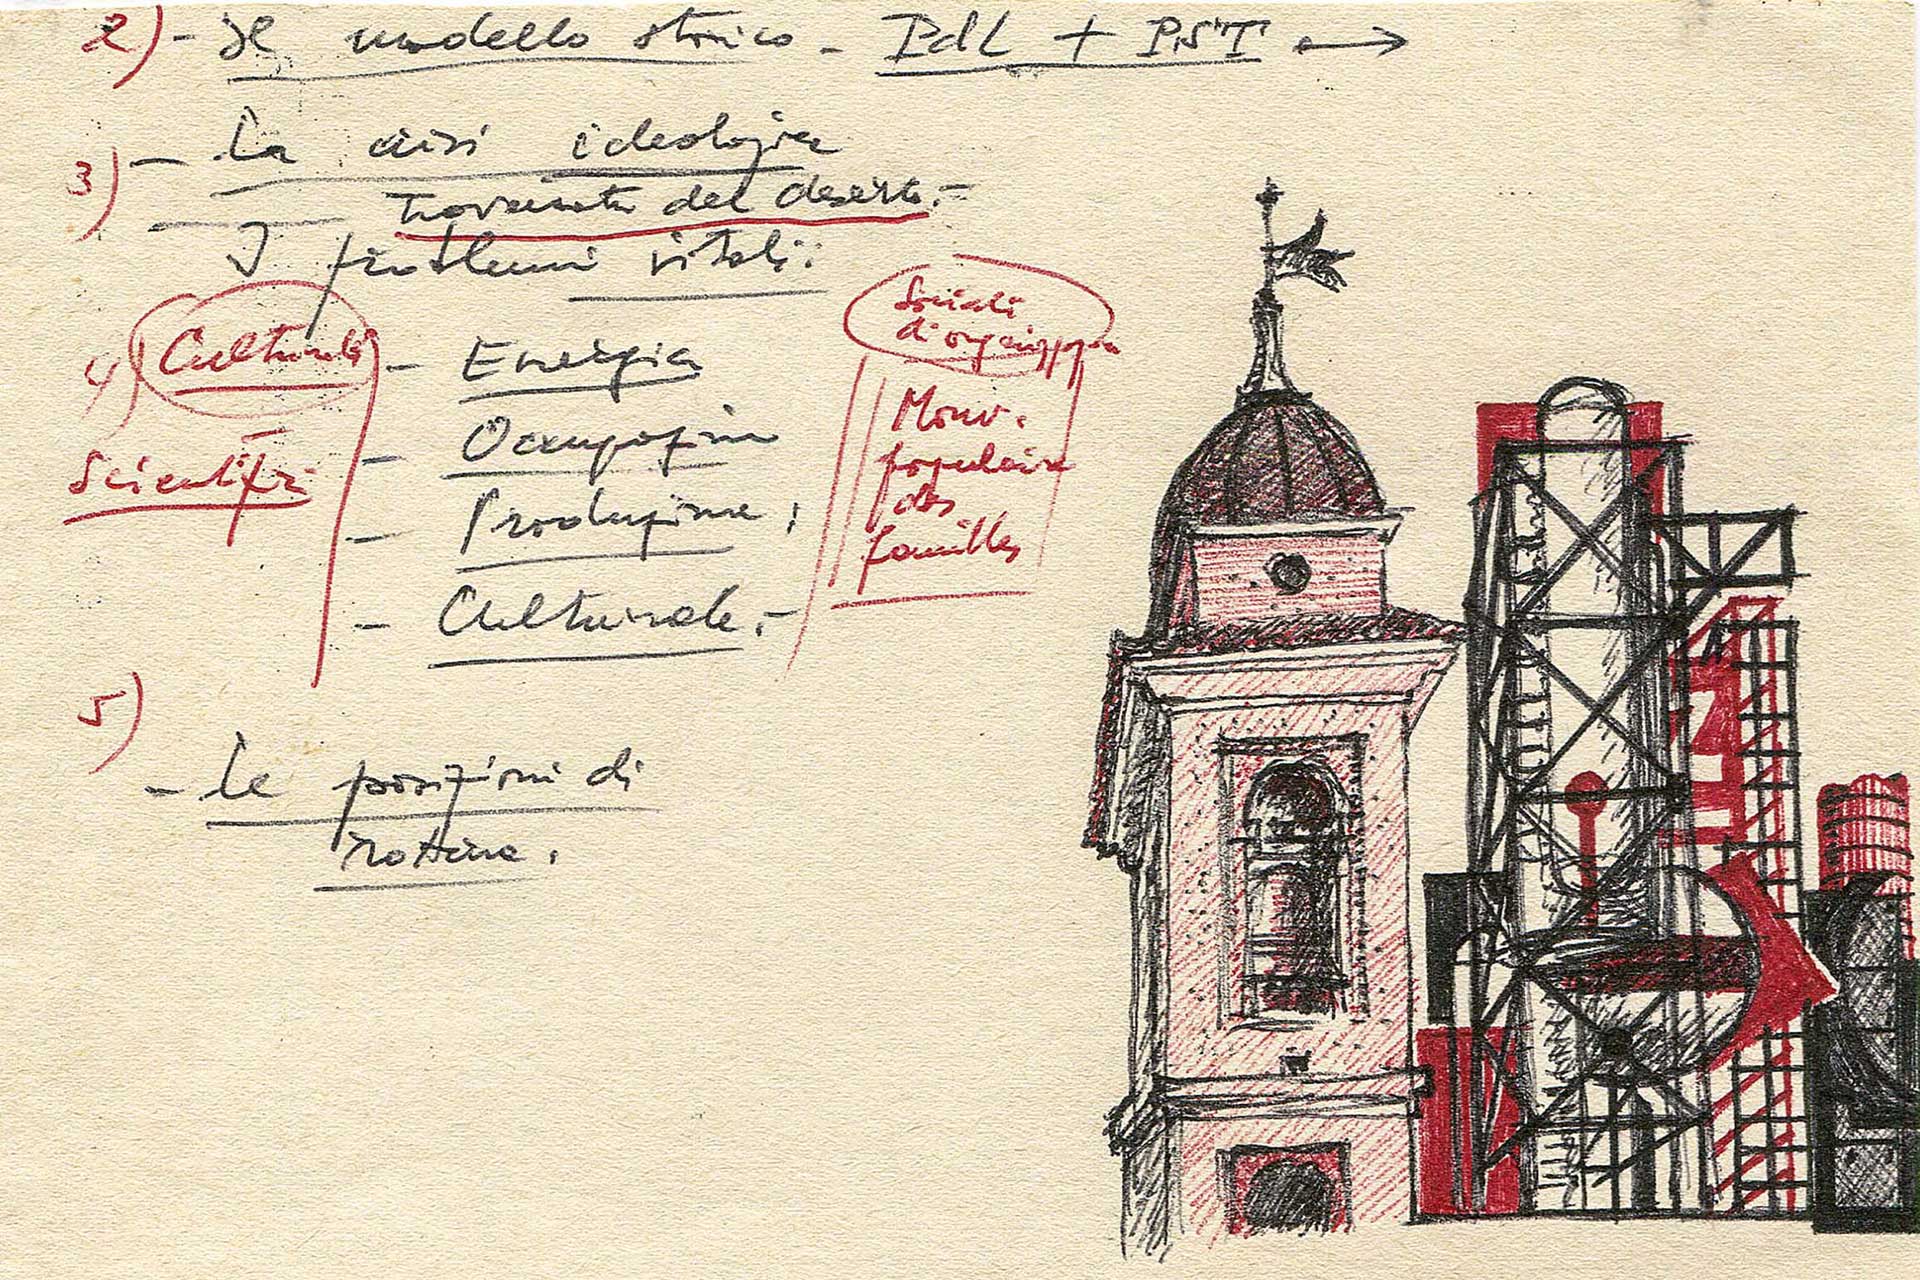 2) - Il modello storico - PdL + PST →
3) - La crisi ideologia
Traversata del deserto.-
I problemi vitali:
4) Culturali - Energia
Scientifici
- Occupazione
- Produzione;
- Culturale.-
Sociali
di organizzazione
Mouv.
populaire
des
familles
5)
- Le posizioni di
rottura.